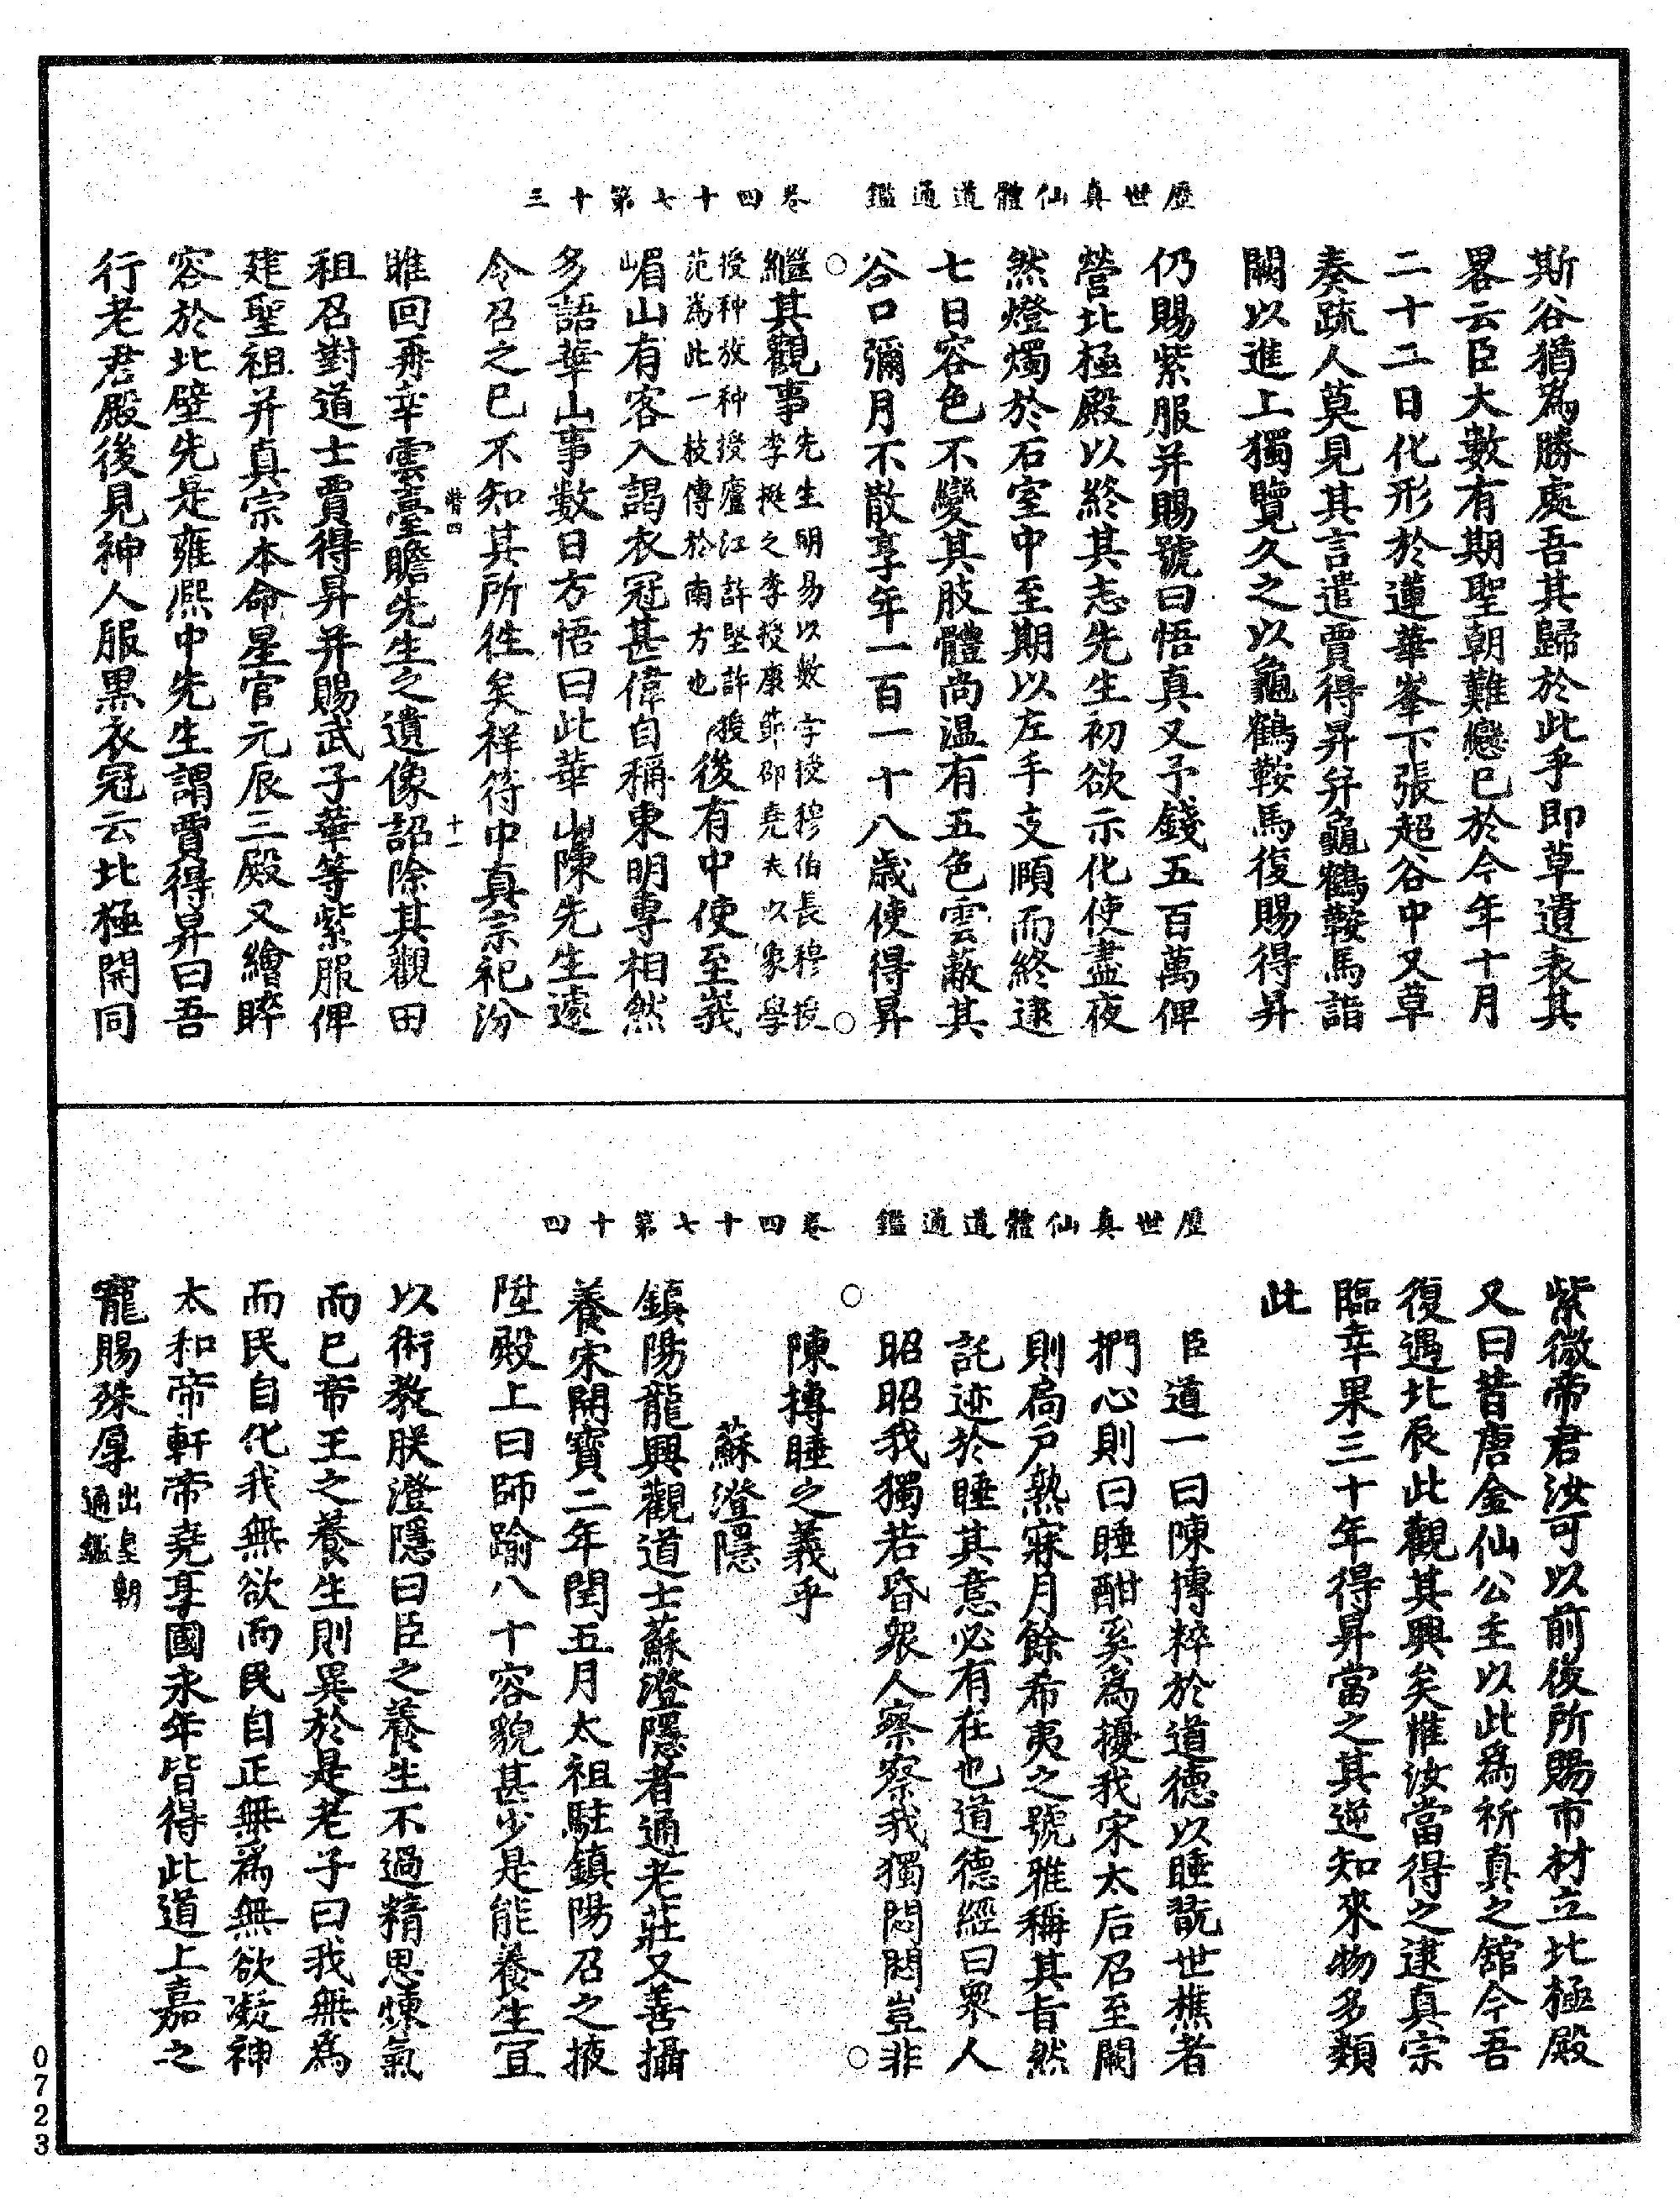 歷世真仙體道通鑑　卷四十七第十三
斯谷猶為勝處吾其歸於此乎即草遺表其
畧云臣大數有期聖朝難戀已於今年十月
二十二日化形於蓮華峯下張超谷中又草
奏疏人莫見其言遣賈得昇并龜鶴鞍馬詣
闕以進上獨覽久之以龜鶴鞍馬復賜得昇
仍賜紫服并賜號曰悟真又予錢五百萬俾
營北極殿以終其志先生初欲示化使盡夜
然燈燭於石室中至期以左手支頤而終逮
七日容色不變其肢體尚温有五色雲蔽其
谷口彌月不散享年一百一十八歲使得昇
繼其觀事先生明易以數字授穆伯長穆授
李挺之李授康節邵堯夫以象學
授种放种授廬江許堅許授
范為此一枝傳於南方也後有中使至峩
嵋山有客入謁衣冠甚偉自稱東明專相然
多語華山事數日方悟曰此華山陳先生遽
令召之已不知其所徃矣祥符中真宗祀汾
睢回再幸雲臺瞻先生之遺像詔除其觀田
租召對道士賈得昇并賜武子華等紫服俾
建聖祖并真宗本命星官元辰三殿又繪睟
容於北壁先是雍熙中先生謂賈得昇曰吾
行老君殿後見神人服黑衣冠云北極開同
十一
歷世真仙體道通鑑　卷四十七第十四
紫微帝君汝可以前後所賜市材立北極殿
又曰昔唐金仙公主以此為祈真之舘今吾
復遇北辰此觀其興矣惟汝當得之逮真宗
臨幸果三十年得昇當之其逆知來物多類
此
臣道一曰陳摶粹於道德以睡翫世樵者
捫心則曰睡酣奚為擾我宋太后召至闕
則扃戶熟寐月餘希夷之號雅稱其旨然
託迹於睡其意必有在也道德經曰眾人
昭昭我獨若昏眾人察察我獨悶悶豈非
陳摶睡之義乎
蘇澄隱
鎮陽龍興觀道士蘇澄隱者通老莊又善攝
養宋開寶二年閏五月太祖駐鎮陽召之掖
陞殿上曰師踰八十容貌甚少是能養生宜
以術教朕澄隱曰臣之養生不過精思煉氣
而已帝王之養生則異於是老子曰我無為
而民自化我無欲而民自正無為無欲凝神
太和帝軒帝堯享國永年皆得此道上嘉之
寵賜殊厚出皇朝
通鑑
0723